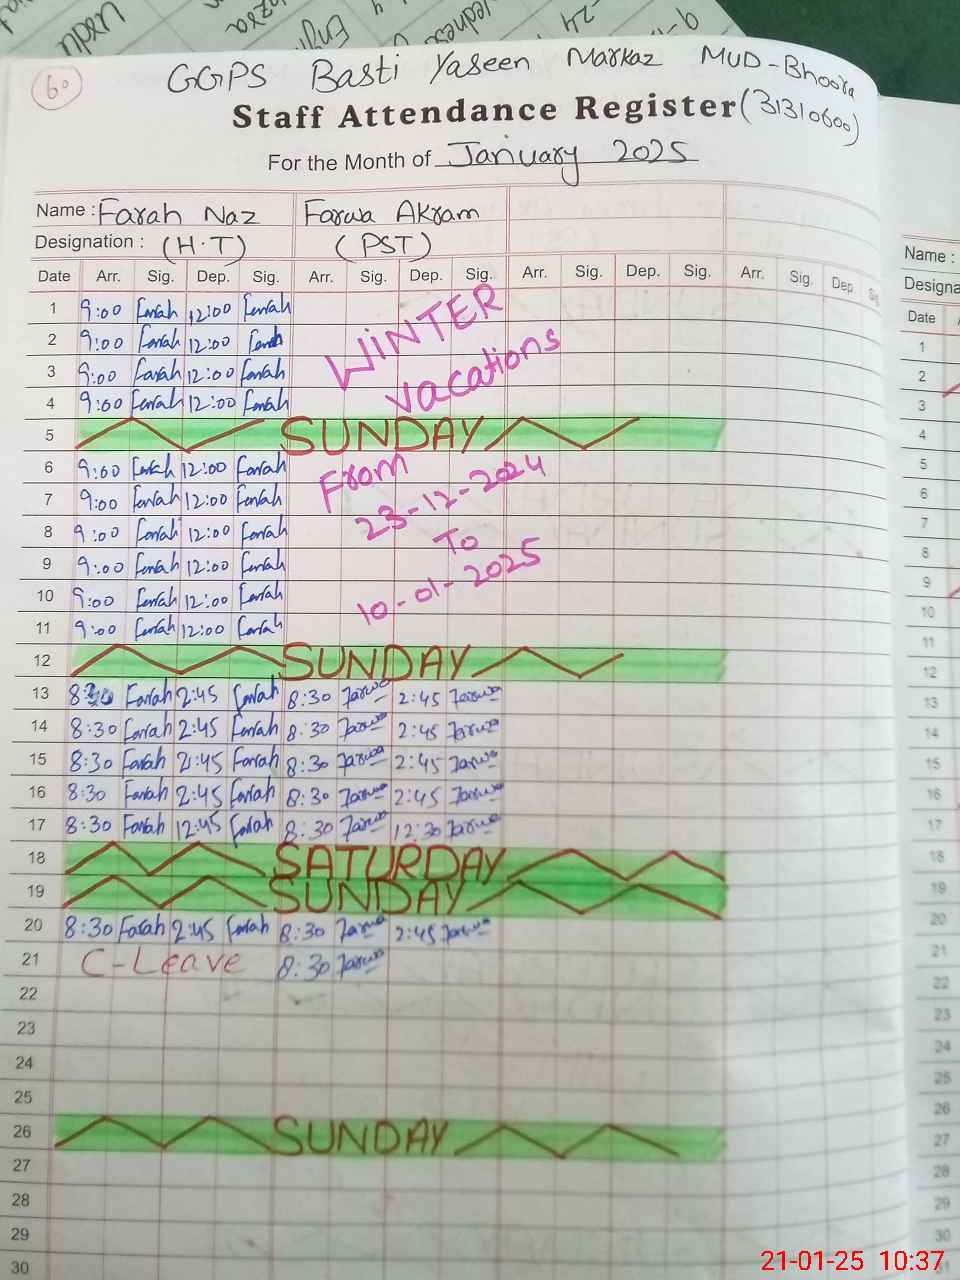 60
GGPS Basti Yaseen Markaz MUD-Bhoora
Staff Attendance Register (31310600)
For the Month of January 2025
Name : Farah Naz Farwa Akram
Designation : (H.T) (PST)
Date Arr. Sig. Dep. Sig. Arr. Sig. Dep. Sig. Arr. Sig. Dep. Sig. Arr. Sig. Dep.
1 9:00 Farah 12:00 Farah
2 9:00 Farah 12:00 Farah
3 9:00 Farah 12:00 Farah
4 9:00 Farah 12:00 Farah
WINTER
vacations
5 SUNDAY
6 9:00 Farah 12:00 Farah
7 9:00 Farah 12:00 Farah
8 9:00 Farah 12:00 Farah
9 9:00 Farah 12:00 Farah
10 9:00 Farah 12:00 Farah
11 9:00 Farah 12:00 Farah
From
23-12-2024
To
10-01-2025
12 SUNDAY
13 8:30 Farah 2:45 Farah 8:30 Farwa 2:45 Farwa
14 8:30 Farah 2:45 Farah 8:30 Farwa 2:45 Farwa
15 8:30 Farah 2:45 Farah 8:30 Farwa 2:45 Farwa
16 8:30 Farah 2:45 Farah 8:30 Farwa 2:45 Farwa
17 8:30 Farah 12:45 Farah 8:30 Farwa 12:30 Farwa
18 SATURDAY
19 SUNDAY
20 8:30 Farah 2:45 Farah 8:30 Farwa 2:45 Farwa
21 C-Leave 8:30 Farwa
22
23
24
25
26 SUNDAY
27
28
29
30
Name :
Designa
Date
1
2
3
4
5
6
7
8
9
10
11
12
13
14
15
16
17
18
19
20
21
22
23
24
25
26
27
28
29
30
21-01-25 10:37